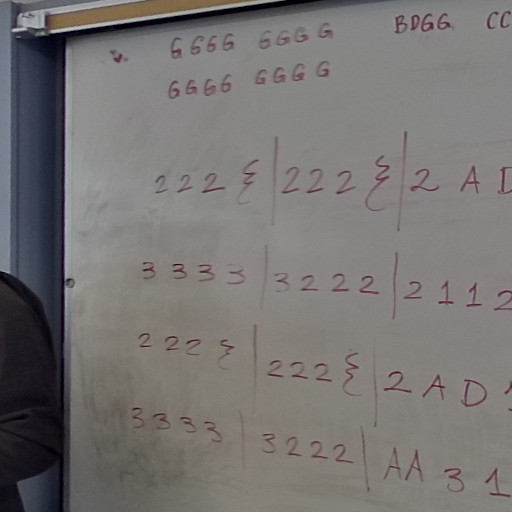 G G G G G G G G BDGG CC
G G G G G G G G
2 2 2 { | 2 2 2 } | 2 A D
3 3 3 3 | 3 2 2 2 | 2 1 1 2
2 2 2 } | 2 2 2 { | 2 A D
3 3 3 3 | 3 2 2 2 | A A 3 1